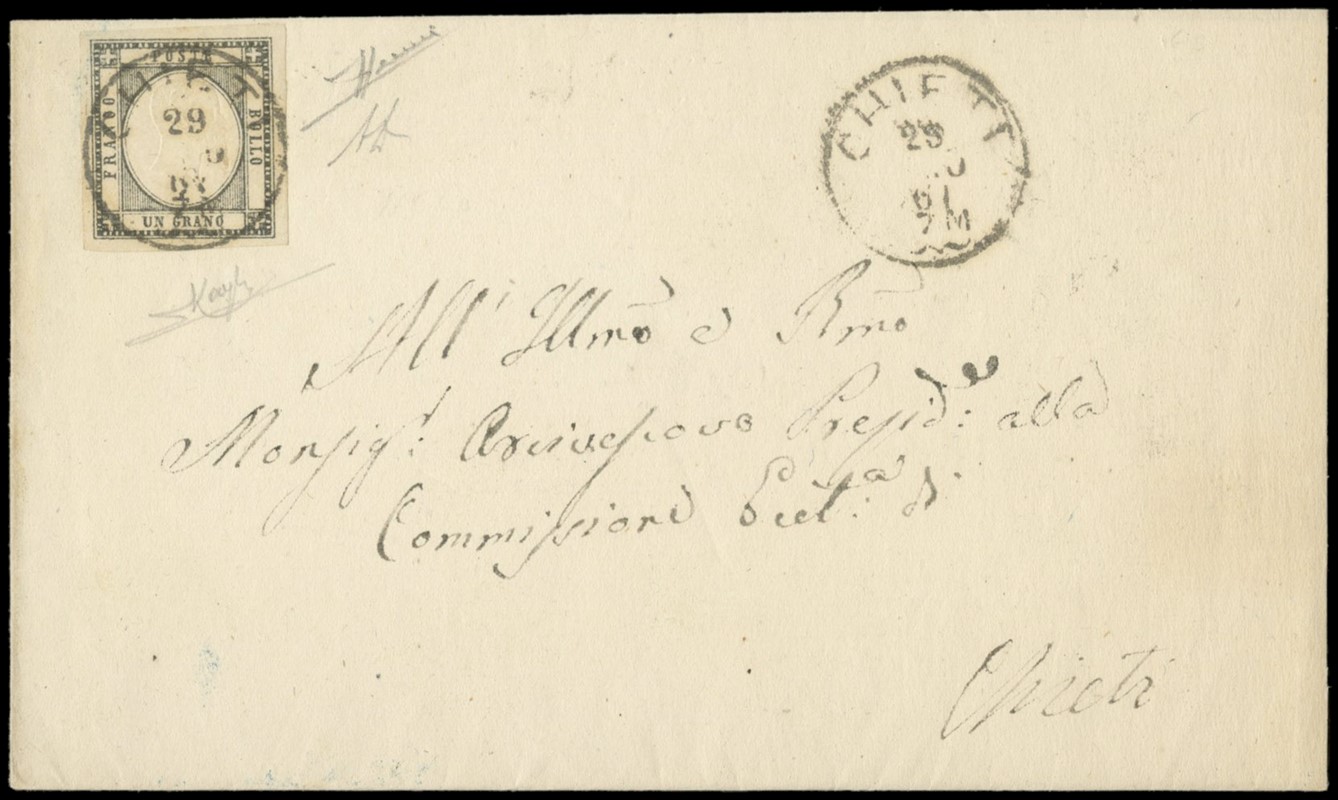 POSTE
FRANCO
BOLLO
UN GRANO
29
CHIETI
29
61
7 M
All' Illmo e Rmo
Monsigr: Arcivescovo Presid:e alla
Commissione di
Chieti